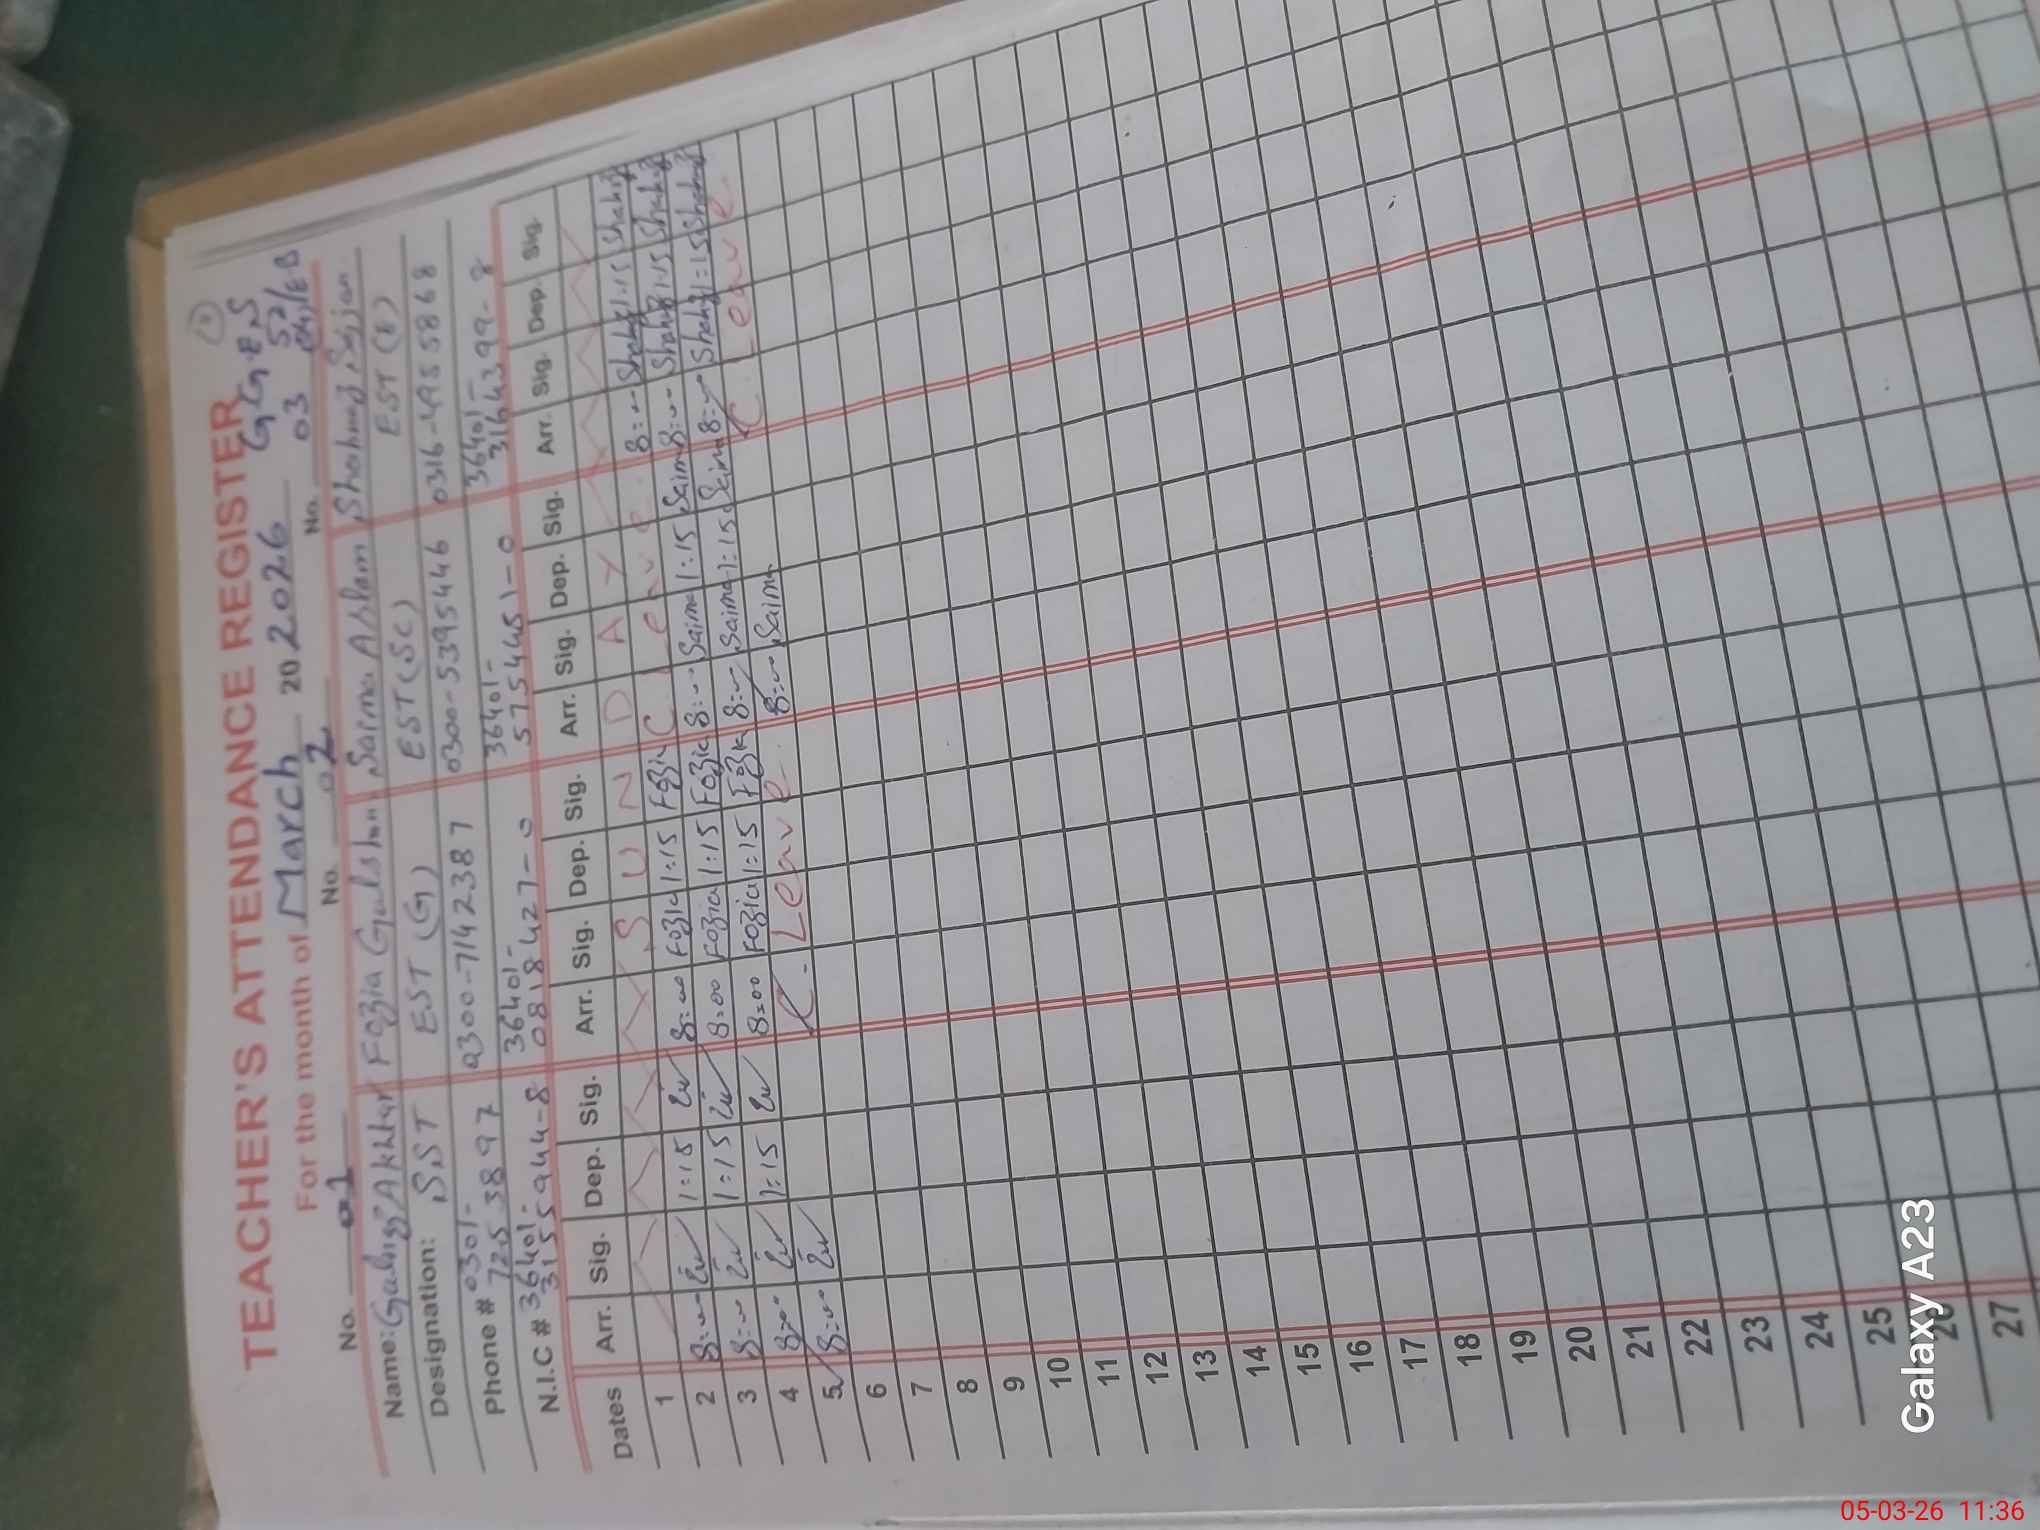 TEACHER'S ATTENDANCE REGISTER
GG.E.S
For the month of March 2026
No. 01 No. 02 No. 03
Name: Akhtar Fozia Gulshan Saima Aslam Shahnaz
Designation: SST EST (G) EST (SC) EST (E)
Phone # 0301-7253897 0300-7142387 0300-5395446 0316-4955868
N.I.C # 36401-3155944-8 36401-0818427-0 36401-5754451-0 36401-3164399-8
Dates Arr. Sig. Dep. Sig. Arr. Sig. Dep. Sig. Arr. Sig. Dep. Sig. Arr. Sig. Dep. Sig.
1 S U N D A Y
2 8:00 1:15 8:00 Fozia 1:15 Fozia C Leave 8:00 Shahnaz 1:15 Shahnaz
3 8:00 1:15 8:00 Fozia 1:15 Fozia 8:00 Saima 1:15 Saima 8:00 Shahnaz 1:15 Shahnaz
4 8:00 1:15 8:00 Fozia 1:15 Fozia 8:00 Saima 1:15 Saima 8:00 Shahnaz 1:15 Shahnaz
5 8:00 C. Leave 8:00 Saima C. Leave
6
7
8
9
10
11
12
13
14
15
16
17
18
19
20
21
22
23
24
25
26
27
Galaxy A23
05-03-26 11:36